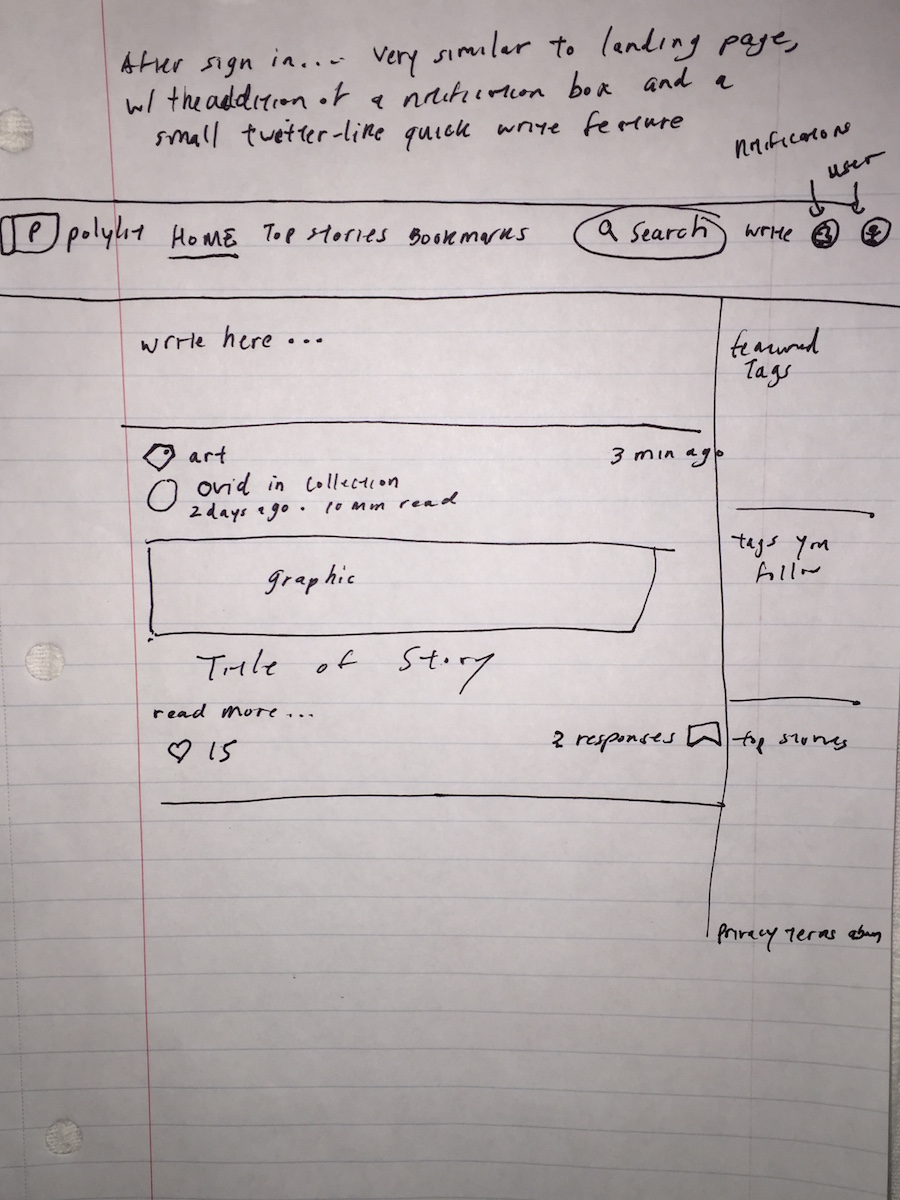 After sign in... very similar to landing page,
w/ the addition of a notification box and a
small twitter-like quick write feature
notifications
user
P polylit HOME Top stories Bookmarks search write
write here ...
featured
Tags
art 3 min ago
ovid in collection
2 days ago . 10 min read
tags you
follow
graphic
Title of Story
read more ...
15 2 responses top stories
privacy terms